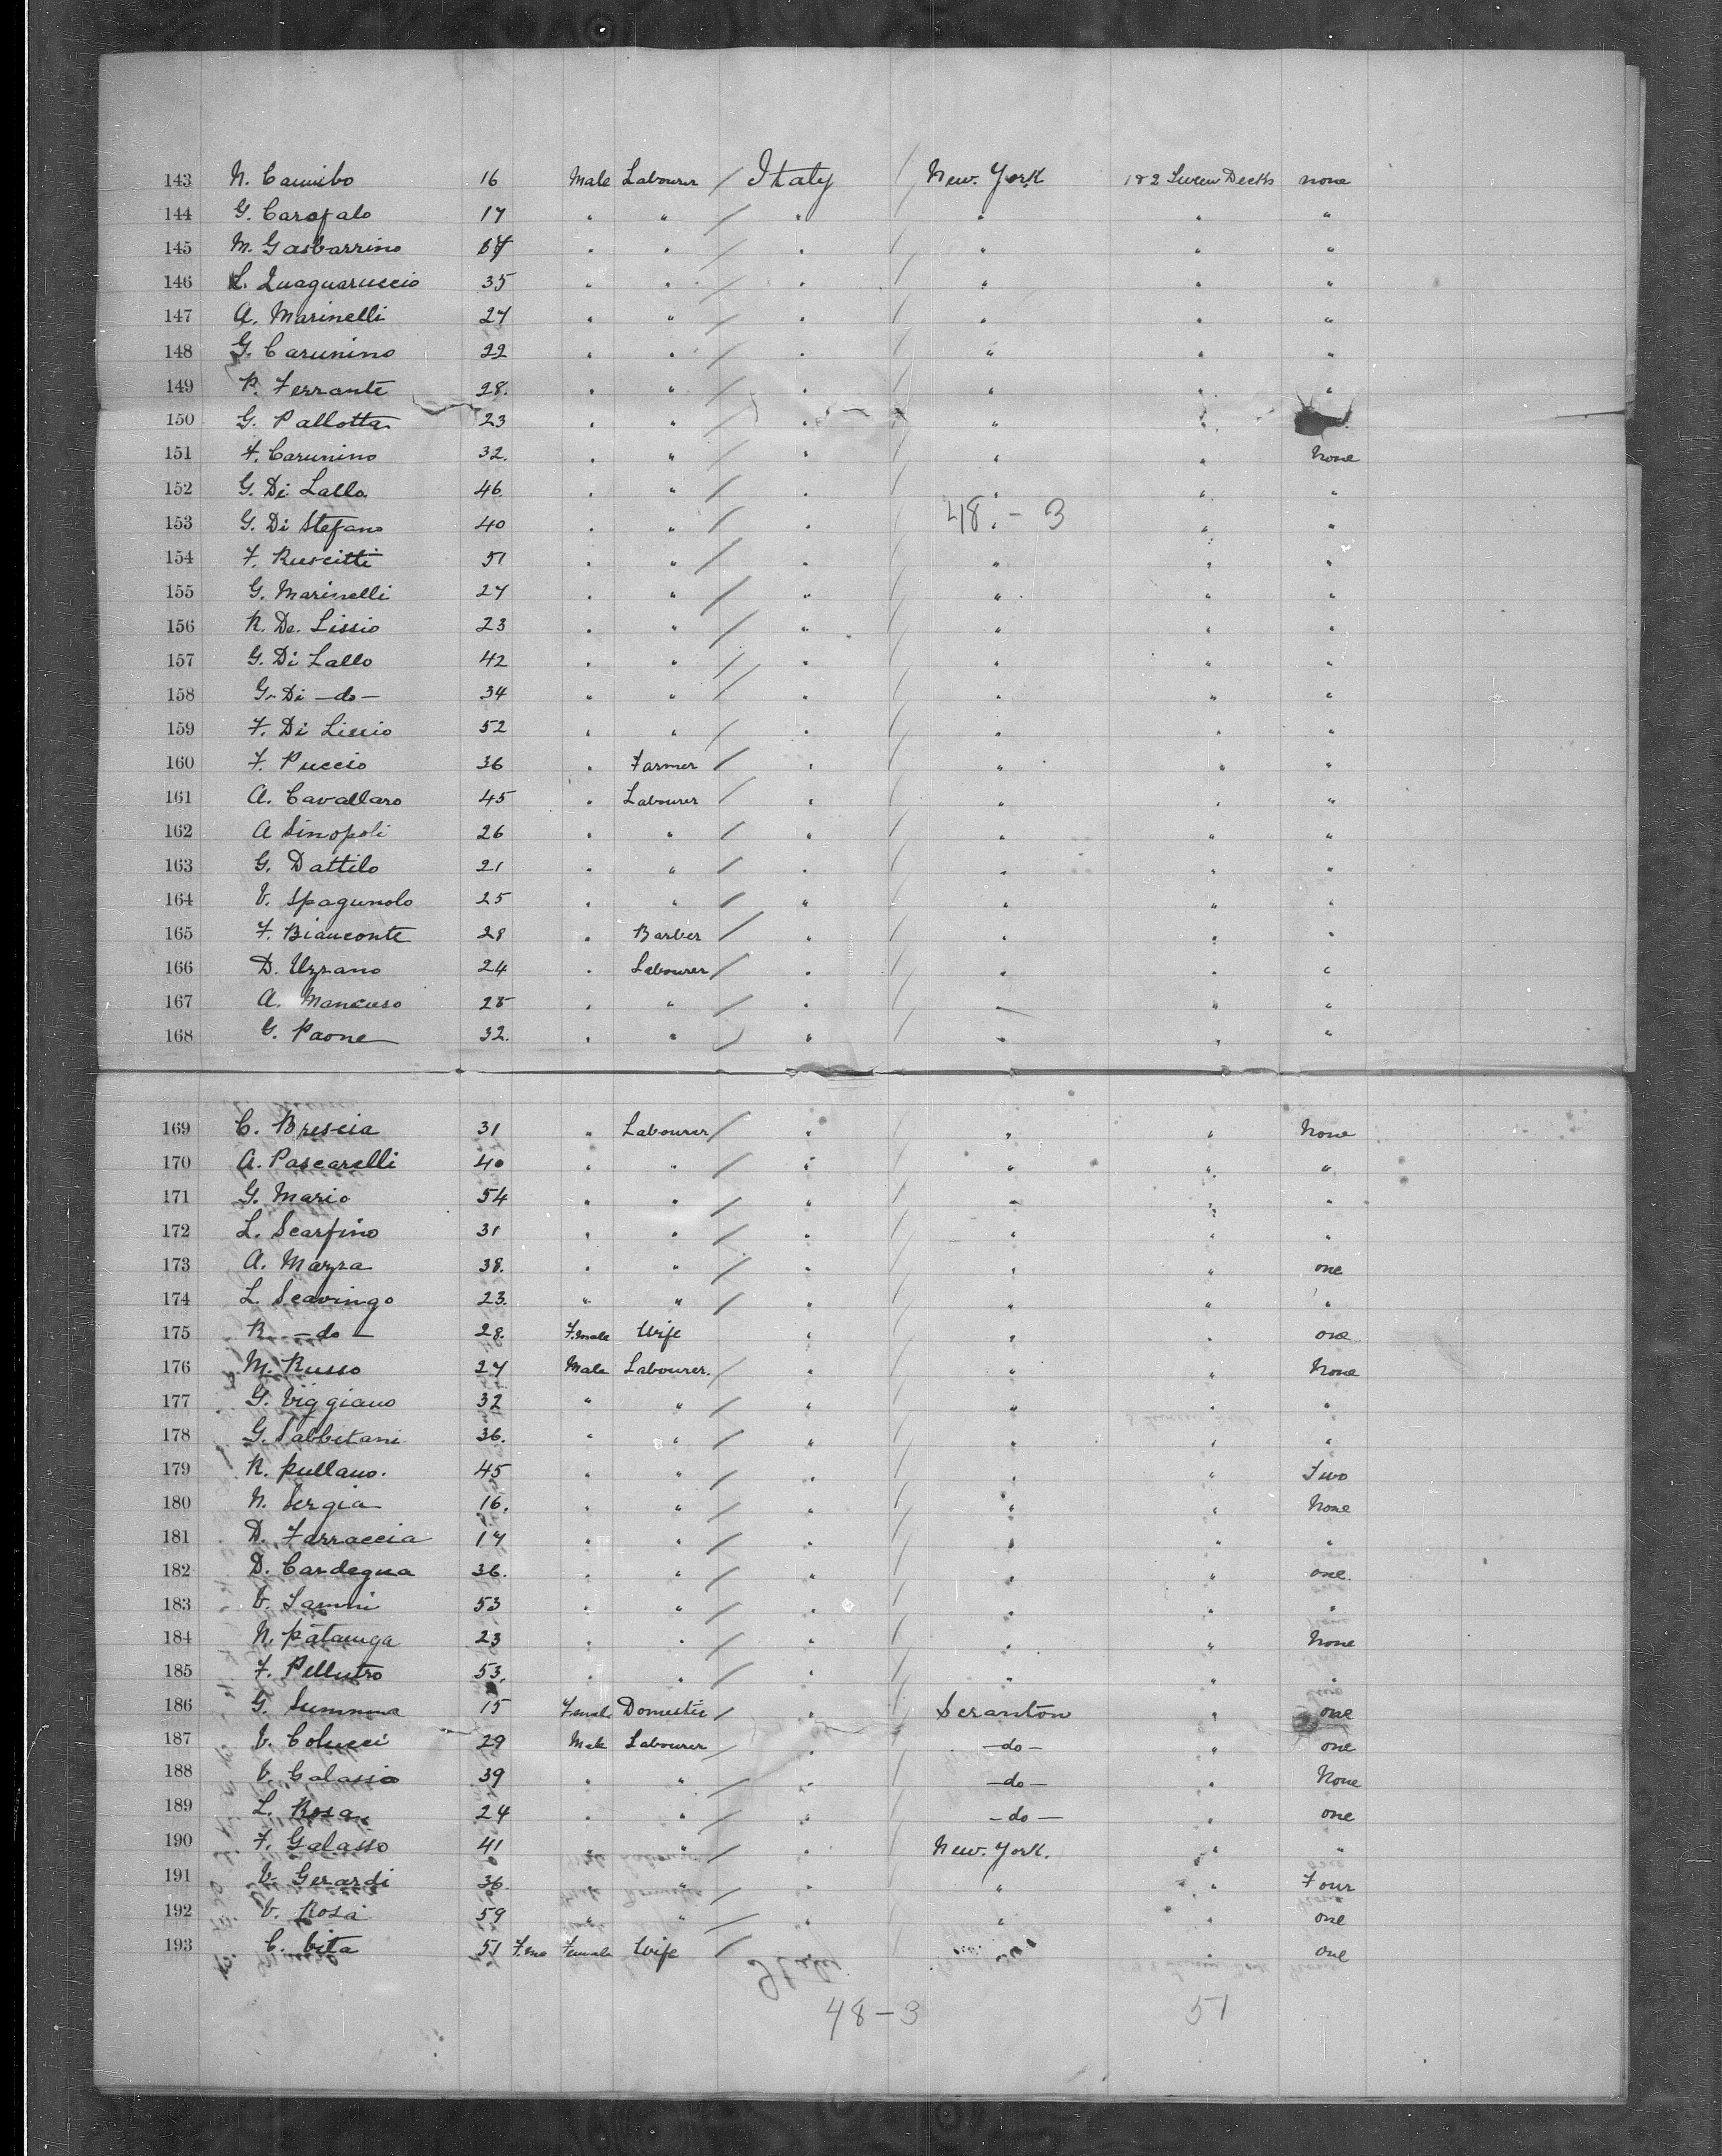 143 N. Camibo 16 Male Labourer / Italy / New. York 1 & 2 Screw Decks none
144 G. Carofalo 17 " " / " / " " "
145 M. Gasbarrino " " / " / " " "
146 L. Quaguaruccio 35 " " / " / " " "
147 A. Marinelli 27 " " / " / " " "
148 G. Carunino 22 " " / " / " " "
149 P. Ferrante 28. " " / " / " " "
150 G. Pallotta 23 " " / " / " "
151 F. Carunino 32. " " / " / " " None
152 G. Di Lallo 46. " " / " / " " "
153 G. Di Stefano 40 " " / " / " 48 - 3 " "
154 F. Ruscitti 51 " " / " / " " "
155 G. Marinelli 27 " " / " / " " "
156 R. De. Lissio 23 " " / " / " " "
157 G. Di Lallo 42 " " / " / " " "
158 G. Di —do— 34 " " / " / " " "
159 F. Di Liscio 52 " " / " / " " "
160 F. Puccio 36 " Farmer / " / " " "
161 A. Cavallaro 45 " Labourer / " / " " "
162 A Sinopoli 26 " " / " / " " "
163 G. Dattilo 21 " " / " / " " "
164 V. Spagunolo 25 " " / " / " " "
165 F. Bianconte 28 " Barber / " / " " "
166 D. Uzzano 24 " Labourer / " / " " "
167 A. Mancuso 28 " " / " / " " "
168 G. Paone 32. " " / " / " " "
169 C. Brescia 31 " Labourer / " / " " None
170 A. Pascarelli 40 " " / " / " " "
171 G. Mario 54 " " / " / " " "
172 L. Scarfino 31 " " / " / " " "
173 A. Mazza 38. " " / " / " " one
174 L. Scavingo 23. " " / " / " " "
175 R. —do— 28. Female Wife " / " " one
176 M. Russo 27 Male Labourer. / " / " " None
177 G. Viggiano 32 " " / " / " " "
178 G. Sabbetani 36. " " / " / " " "
179 R. Pullano. 45 " " / " / " " Two
180 N. Sergia 16. " " / " / " " None
181 D. Farraccia 17 " " / " / " " "
182 D. Cardegna 36. " " / " / " " one.
183 V. Iannni 53 " " / " / " " "
184 N. Patamga 23 " " / " / " " None
185 F. Pellutro 53. " " / " / " " "
186 G. Summa 15 Female Domestic / " / Scranton " one
187 V. Colucci 29 Male Labourer / " / —do— " one
188 V. Galassio 39 " " / " / —do— " None
189 L. Rosa 24 " " / " / —do— " one
190 F. Galasso 41 " " / " / New. York. " "
191 V. Gerardi 36. " " / " / " " Four
192 V. Rosa 59 " " / " / " " one
193 C. Vita 51 Fema Female Wife / " one
48 - 3 51